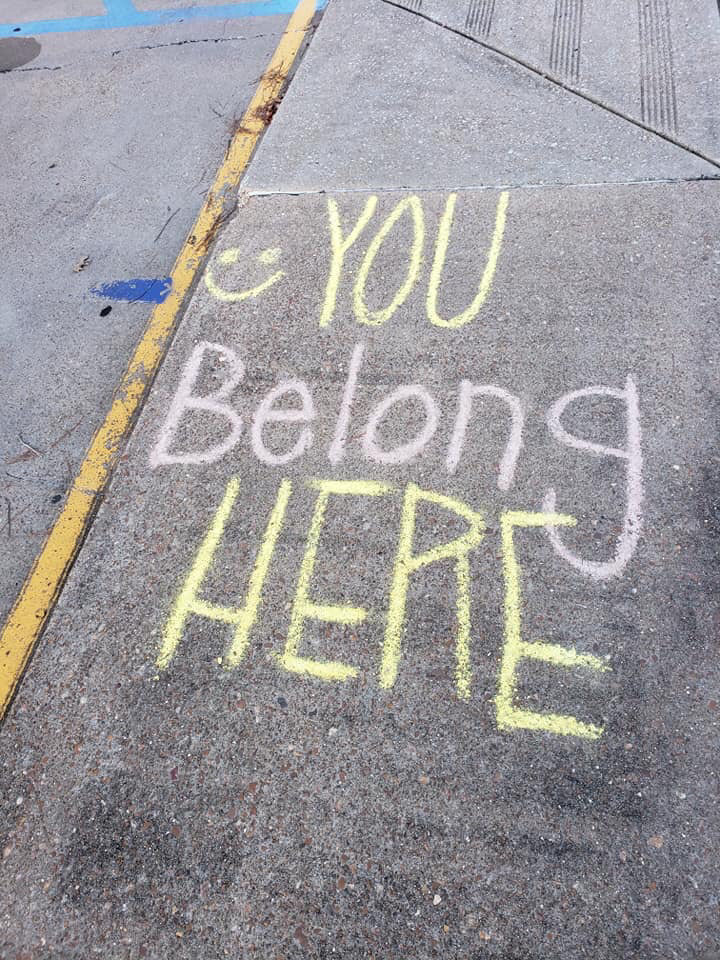 YOU
Belong
HERE